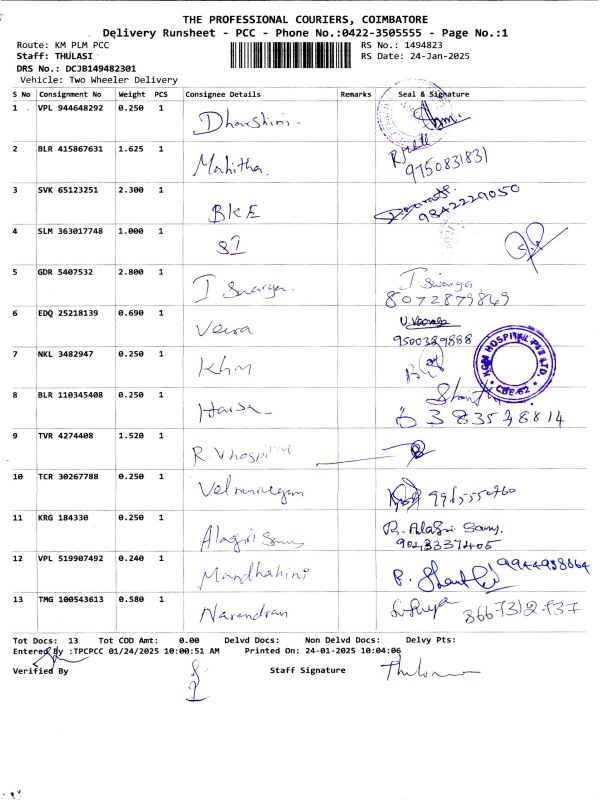 THE PROFESSIONAL COURIERS, COIMBATORE
Delivery Runsheet - PCC - Phone No.:0422-3505555 - Page No.:1
Route: KM PLM PCC
RS No.: 1494823
Staff: THULASI
RS Date: 24-Jan-2025
DRS No.: DCJB149482301
Vehicle: Two Wheeler Delivery
S No Consignment No Weight PCS Consignee Details Remarks Seal & Signature
1 VPL 944648292 0.250 1 Dharshini.
2 BLR 415867631 1.625 1 Mahitha. 9750831831
3 SVK 65123251 2.300 1 BKE 9842229050
4 SLM 363017748 1.000 1 SI
5 GDR 5407532 2.800 1 I Swarya. I Swarya.
8072879849
6 EDQ 25218139 0.690 1 Veira
9500329888
7 NKL 3482947 0.250 1 Khm KGM HOSPITAL PVT LTD. CBE-62
8 BLR 110345408 0.250 1 Harsa
6383538814
9 TVR 4274408 1.520 1 R. V hospital
10 TCR 30267788 0.250 1 Velmurugan
11 KRG 184330 0.250 1 Alagiri Samy R. Alagiri Samy.
9043337405
12 VPL 519907492 0.240 1 Mandhahini 9944988864
13 TMG 100543613 0.580 1 Narendran
Tot Docs: 13 Tot COD Amt: 0.00 Delvd Docs: Non Delvd Docs: Delvy Pts:
Entered By :TPCPCC 01/24/2025 10:00:51 AM Printed On: 24-01-2025 10:04:06
Verified By Staff Signature